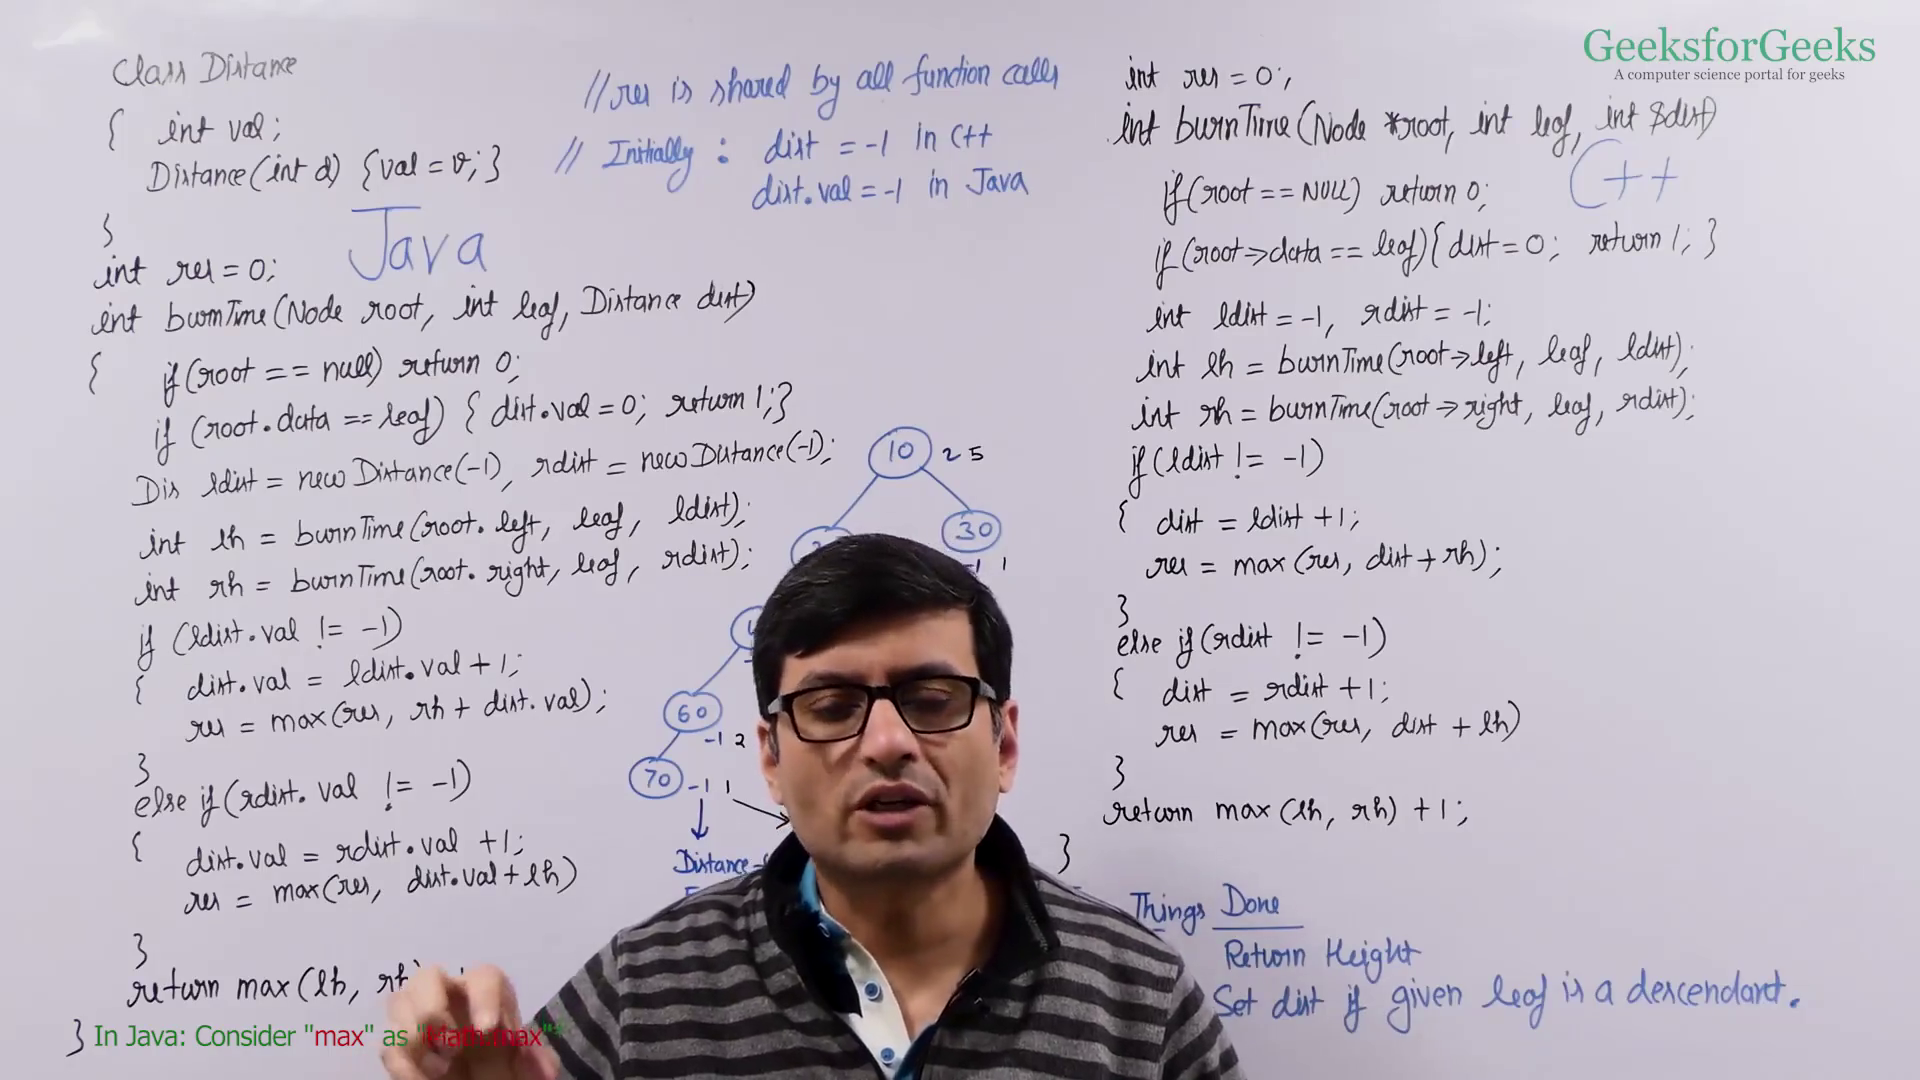 Class Distance
{ int val;
Distance(int d) {val = v;}
}
Java
int res = 0;
int burnTime(Node root, int leaf, Distance dist)
{ if(root == null) return 0;
if (root.data == leaf) { dist.val = 0; return 1;}
Dis ldist = new Distance(-1), rdist = new Distance(-1);
int lh = burnTime(root.left, leaf, ldist);
int rh = burnTime(root.right, leaf, rdist);
if (ldist.val != -1)
{ dist.val = ldist.val + 1;
res = max(res, rh + dist.val);
}
else if(rdist.val != -1)
{ dist.val = rdist.val + 1;
res = max(res, dist.val + lh)
}
return max(lh, rh)
}
In Java: Consider "max" as "Math.max"
//res is shared by all function calls
// Initially : dist = -1 in C++
dist.val = -1 in Java
10 2 5
30
-1 1
60
-1 2
70 -1 1
Distance
GeeksforGeeks
A computer science portal for geeks
int res = 0;
int burnTime(Node *root, int leaf, int &dist)
C++
if(root == NULL) return 0;
if(root->data == leaf){ dist = 0; return 1; }
int ldist = -1, rdist = -1;
int lh = burnTime(root->left, leaf, ldist);
int rh = burnTime(root->right, leaf, rdist);
if(ldist != -1)
{ dist = ldist + 1;
res = max(res, dist + rh);
}
else if(rdist != -1)
{ dist = rdist + 1;
res = max(res, dist + lh)
}
return max(lh, rh) + 1;
}
Things Done
Return Height
Set dist if given leaf is a descendant.